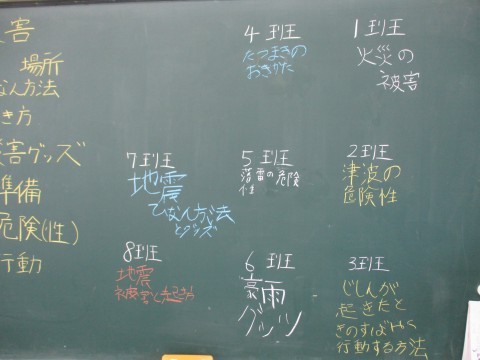 1班
火災の
被害
2班
津波の
危険性
3班
じしんが
起きたと
きのすばやく
行動する方法
4班
たつまきの
おきかた
5班
落雷の危険
性
6班
豪雨
グッツ
7班
地震
ひなん方法
とグッズ
8班
地震
被害と起き方
害
場所
なん方法
き方
災害グッズ
準備
危険(性)
行動